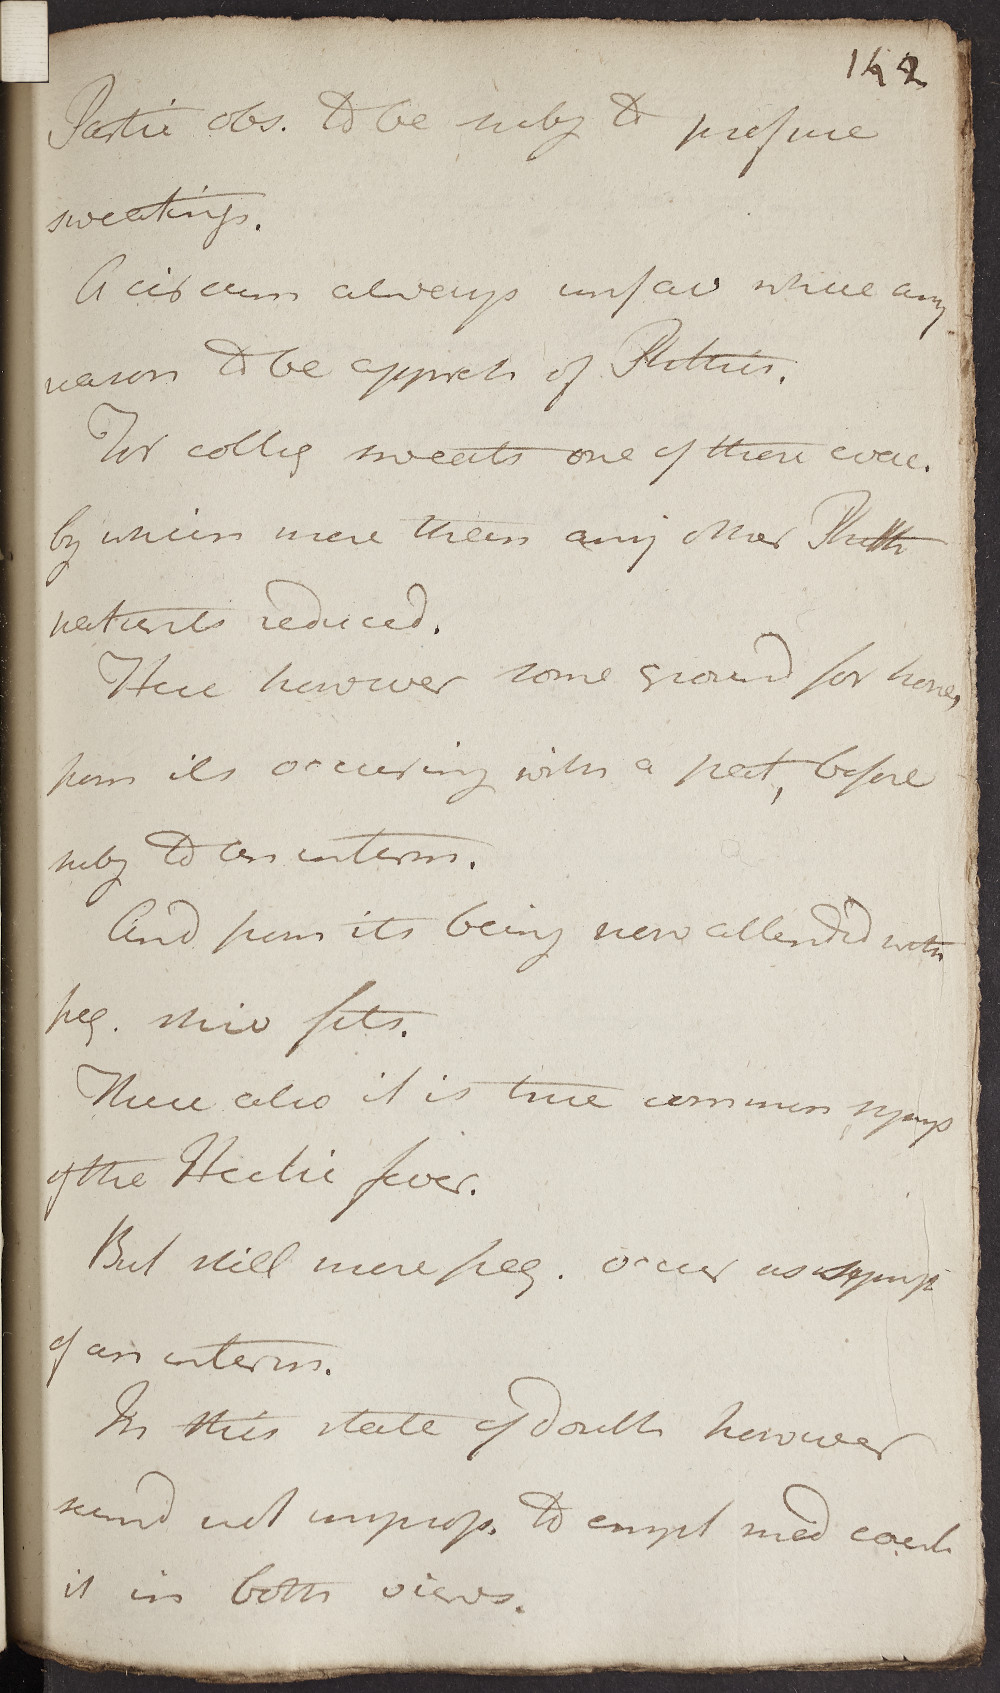 142
Partic obs. to be subj to profuse
sweatings.
A circum always unfav where any
reason to be appreh of Phthis.
For colliq sweats one of those evac.
by which more than any other Phth
patients reduced.
Here however some ground for hope,
from its occuring with a pat, before
subj to an interm.
And from its being now attended with
freq. shiv fits.
These also it is true common symp
of the Hectic fever.
But still more freq. occur as symp
of an interm.
In this state of doubt however
seem'd not improp. to empl med
it in both views.